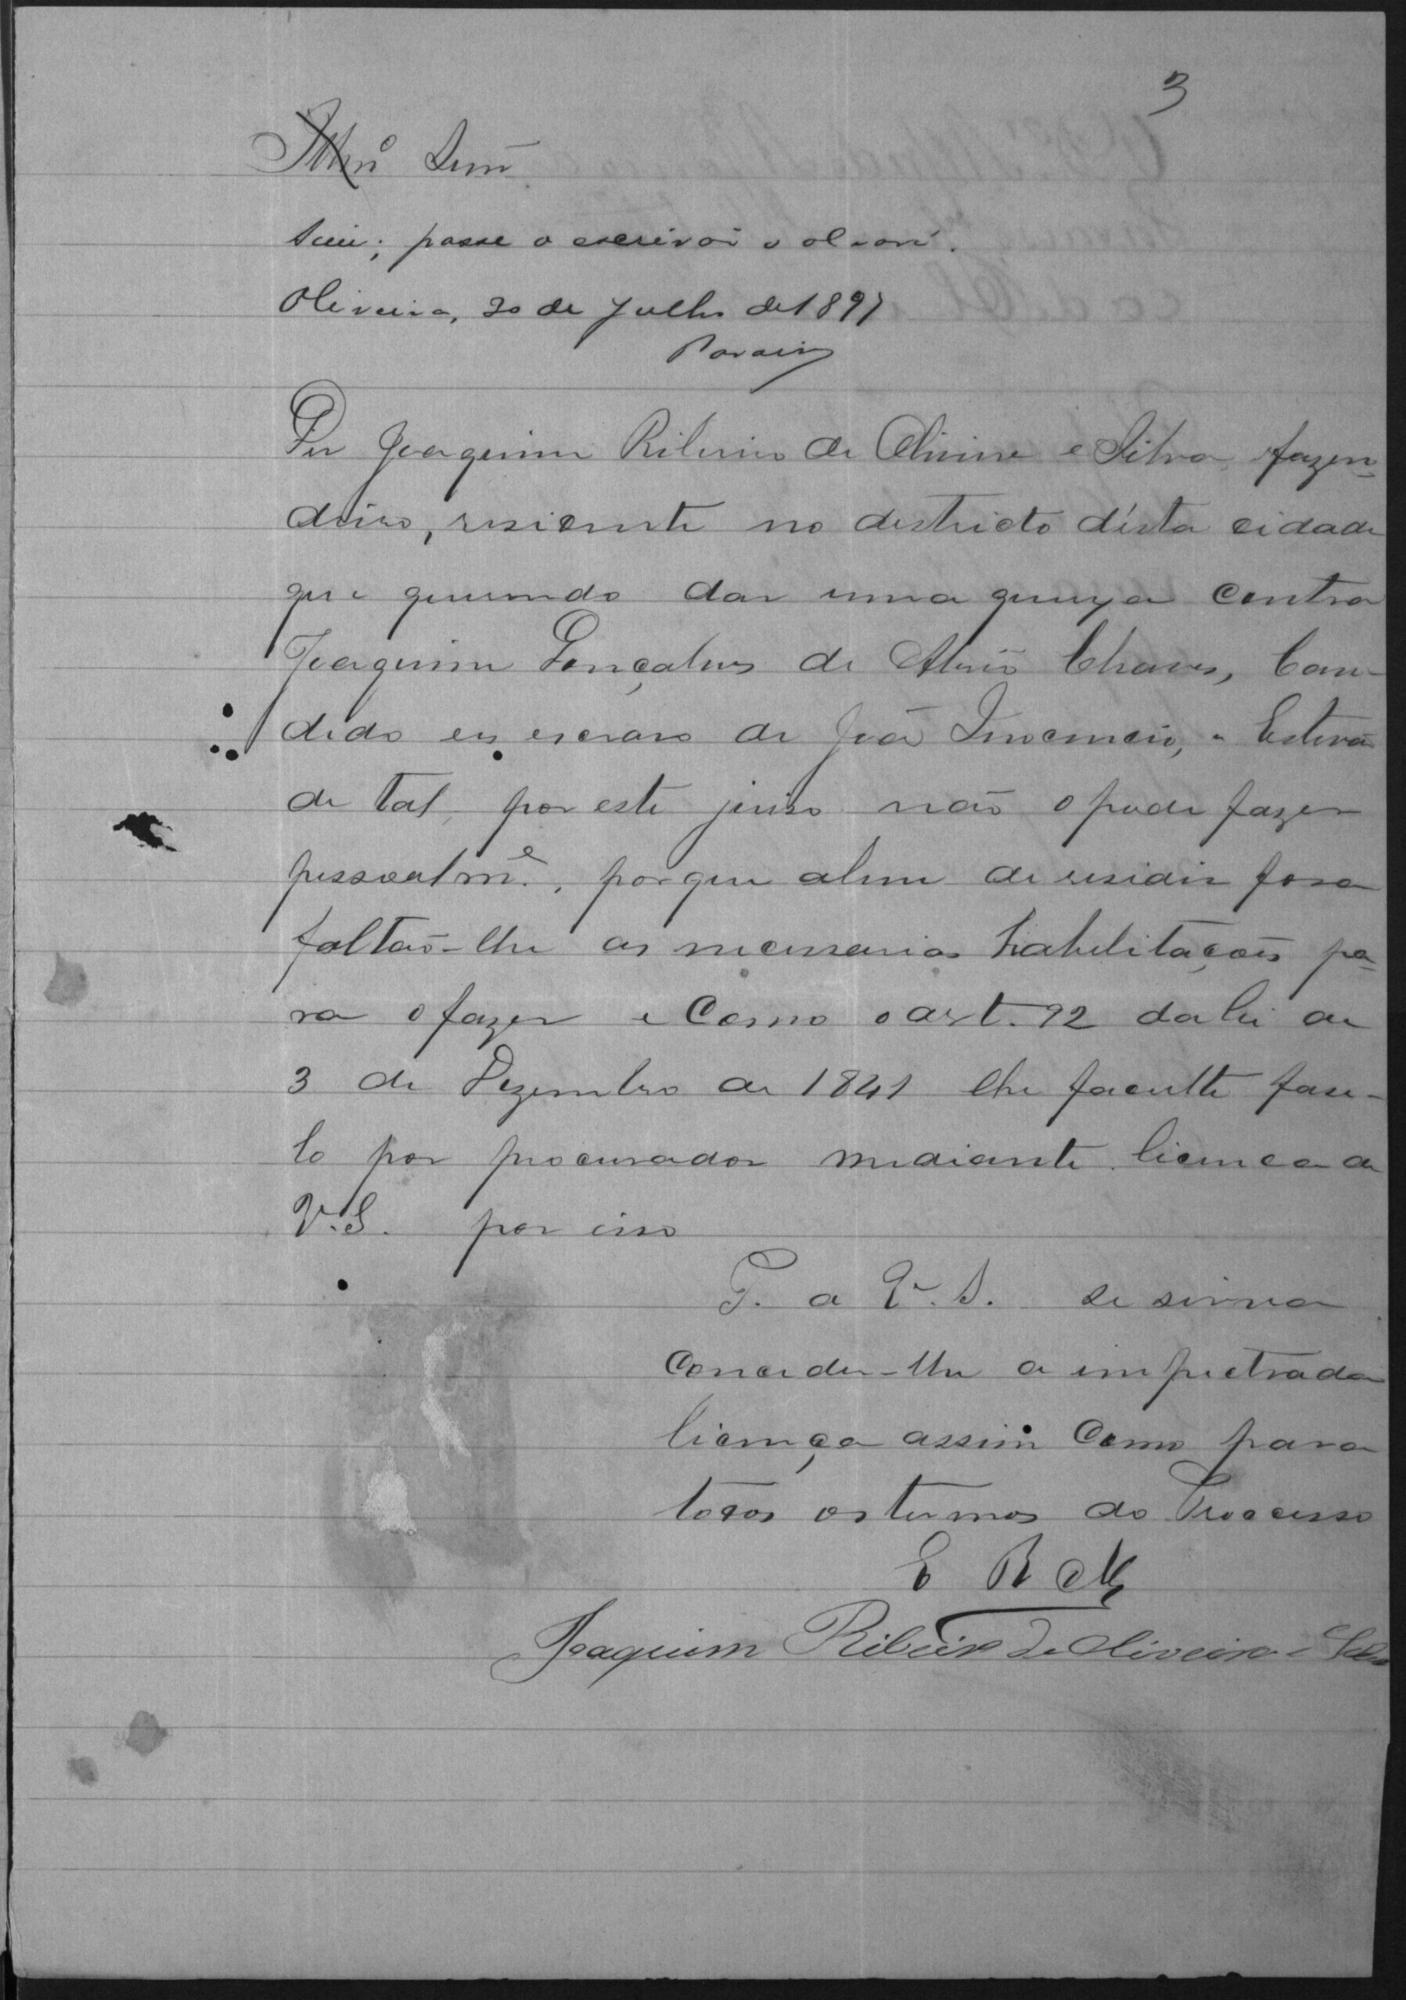 3
Illmº Senr
Sim; passe o escrivão o alvará.
Oliveira, 30 de Julho de 1891
Diz Joaquim Ribeiro de Oliveira e Silva, fazen-
deiro, residente no destricto désta cidade
que querendo dar uma queixa contra
Joaquim Gonçalves de Chaves, Can-
dido ex escravo de João Innocencio, e Estevão
de tal, por este juiso não o pode fazer
pessoalmᵉ, porque alem de residir fora
faltão-lhe as necessarias habilitações pa-
ra o fazer e como o art. 92 da lei de
3 de Dezembro de 1841 lhe faculte fase-
lo por procurador mediante licença de
V.S. por isso
P. a V.S. se sirva
conceder-lhe a impetrada
licença assim como para
todos os termos do Processo
E R Mᶜᵉ
Joaquim Ribeiro de Oliveira e Silva